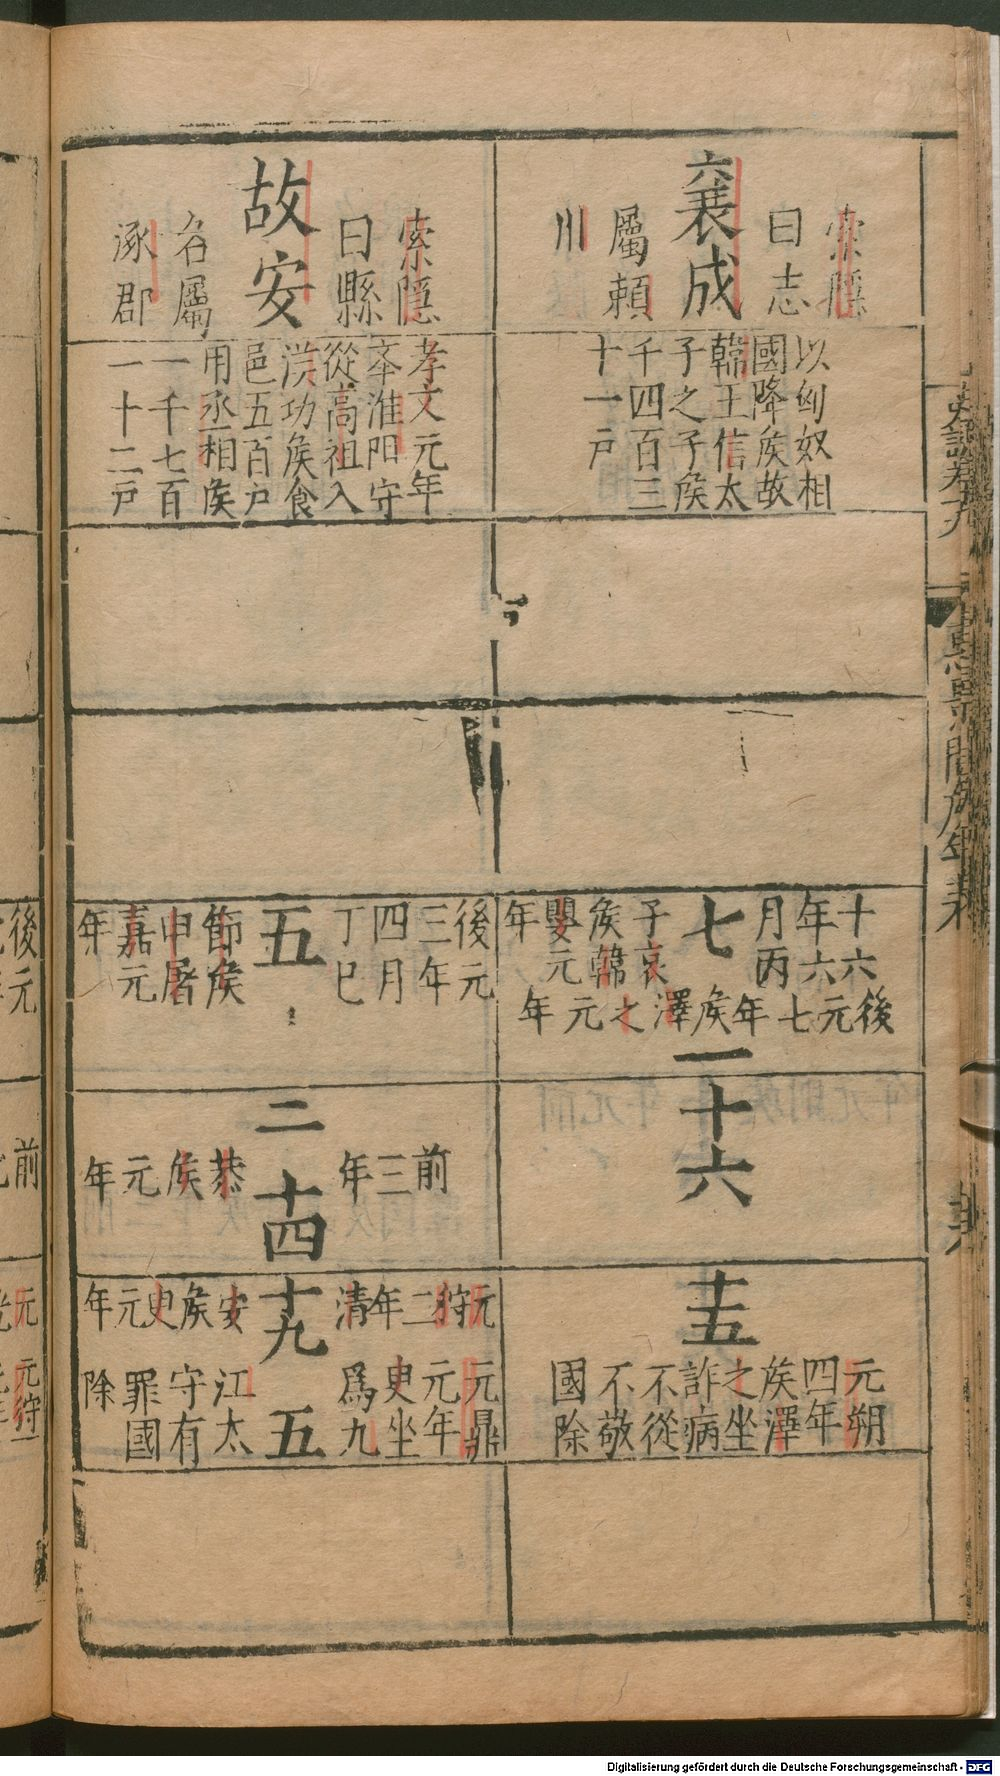 索隱
曰志
襄成
屬頴
川
以匈奴相
國降矦故
韓王信太
子之子矦
千四百三
十一戶
十六
年六
月丙
七
子哀
矦韓
嬰元
年
後元七年矦澤之元年
一
十六
十五
元朔
四年
矦澤
之坐
詐病
不從
不敬
國除
索隱
曰縣
故安
名屬
涿郡
孝文元年
夲淮阳守
從高祖入
漢功矦食
邑五百户
用丞相矦
一千七百
一十二戸
後元
三年
四月
丁巳
五
節矦
申屠
嘉元
年
二
前三年
十四
恭矦元年
元狩二年清
十九
安矦史元年
元鼎
元年
㬰坐
爲九
五
江太
守有
罪國
除
後元
前
元
元狩
Digitalisierung gefördert durch die Deutsche Forschungsgemeinschaft - DFG